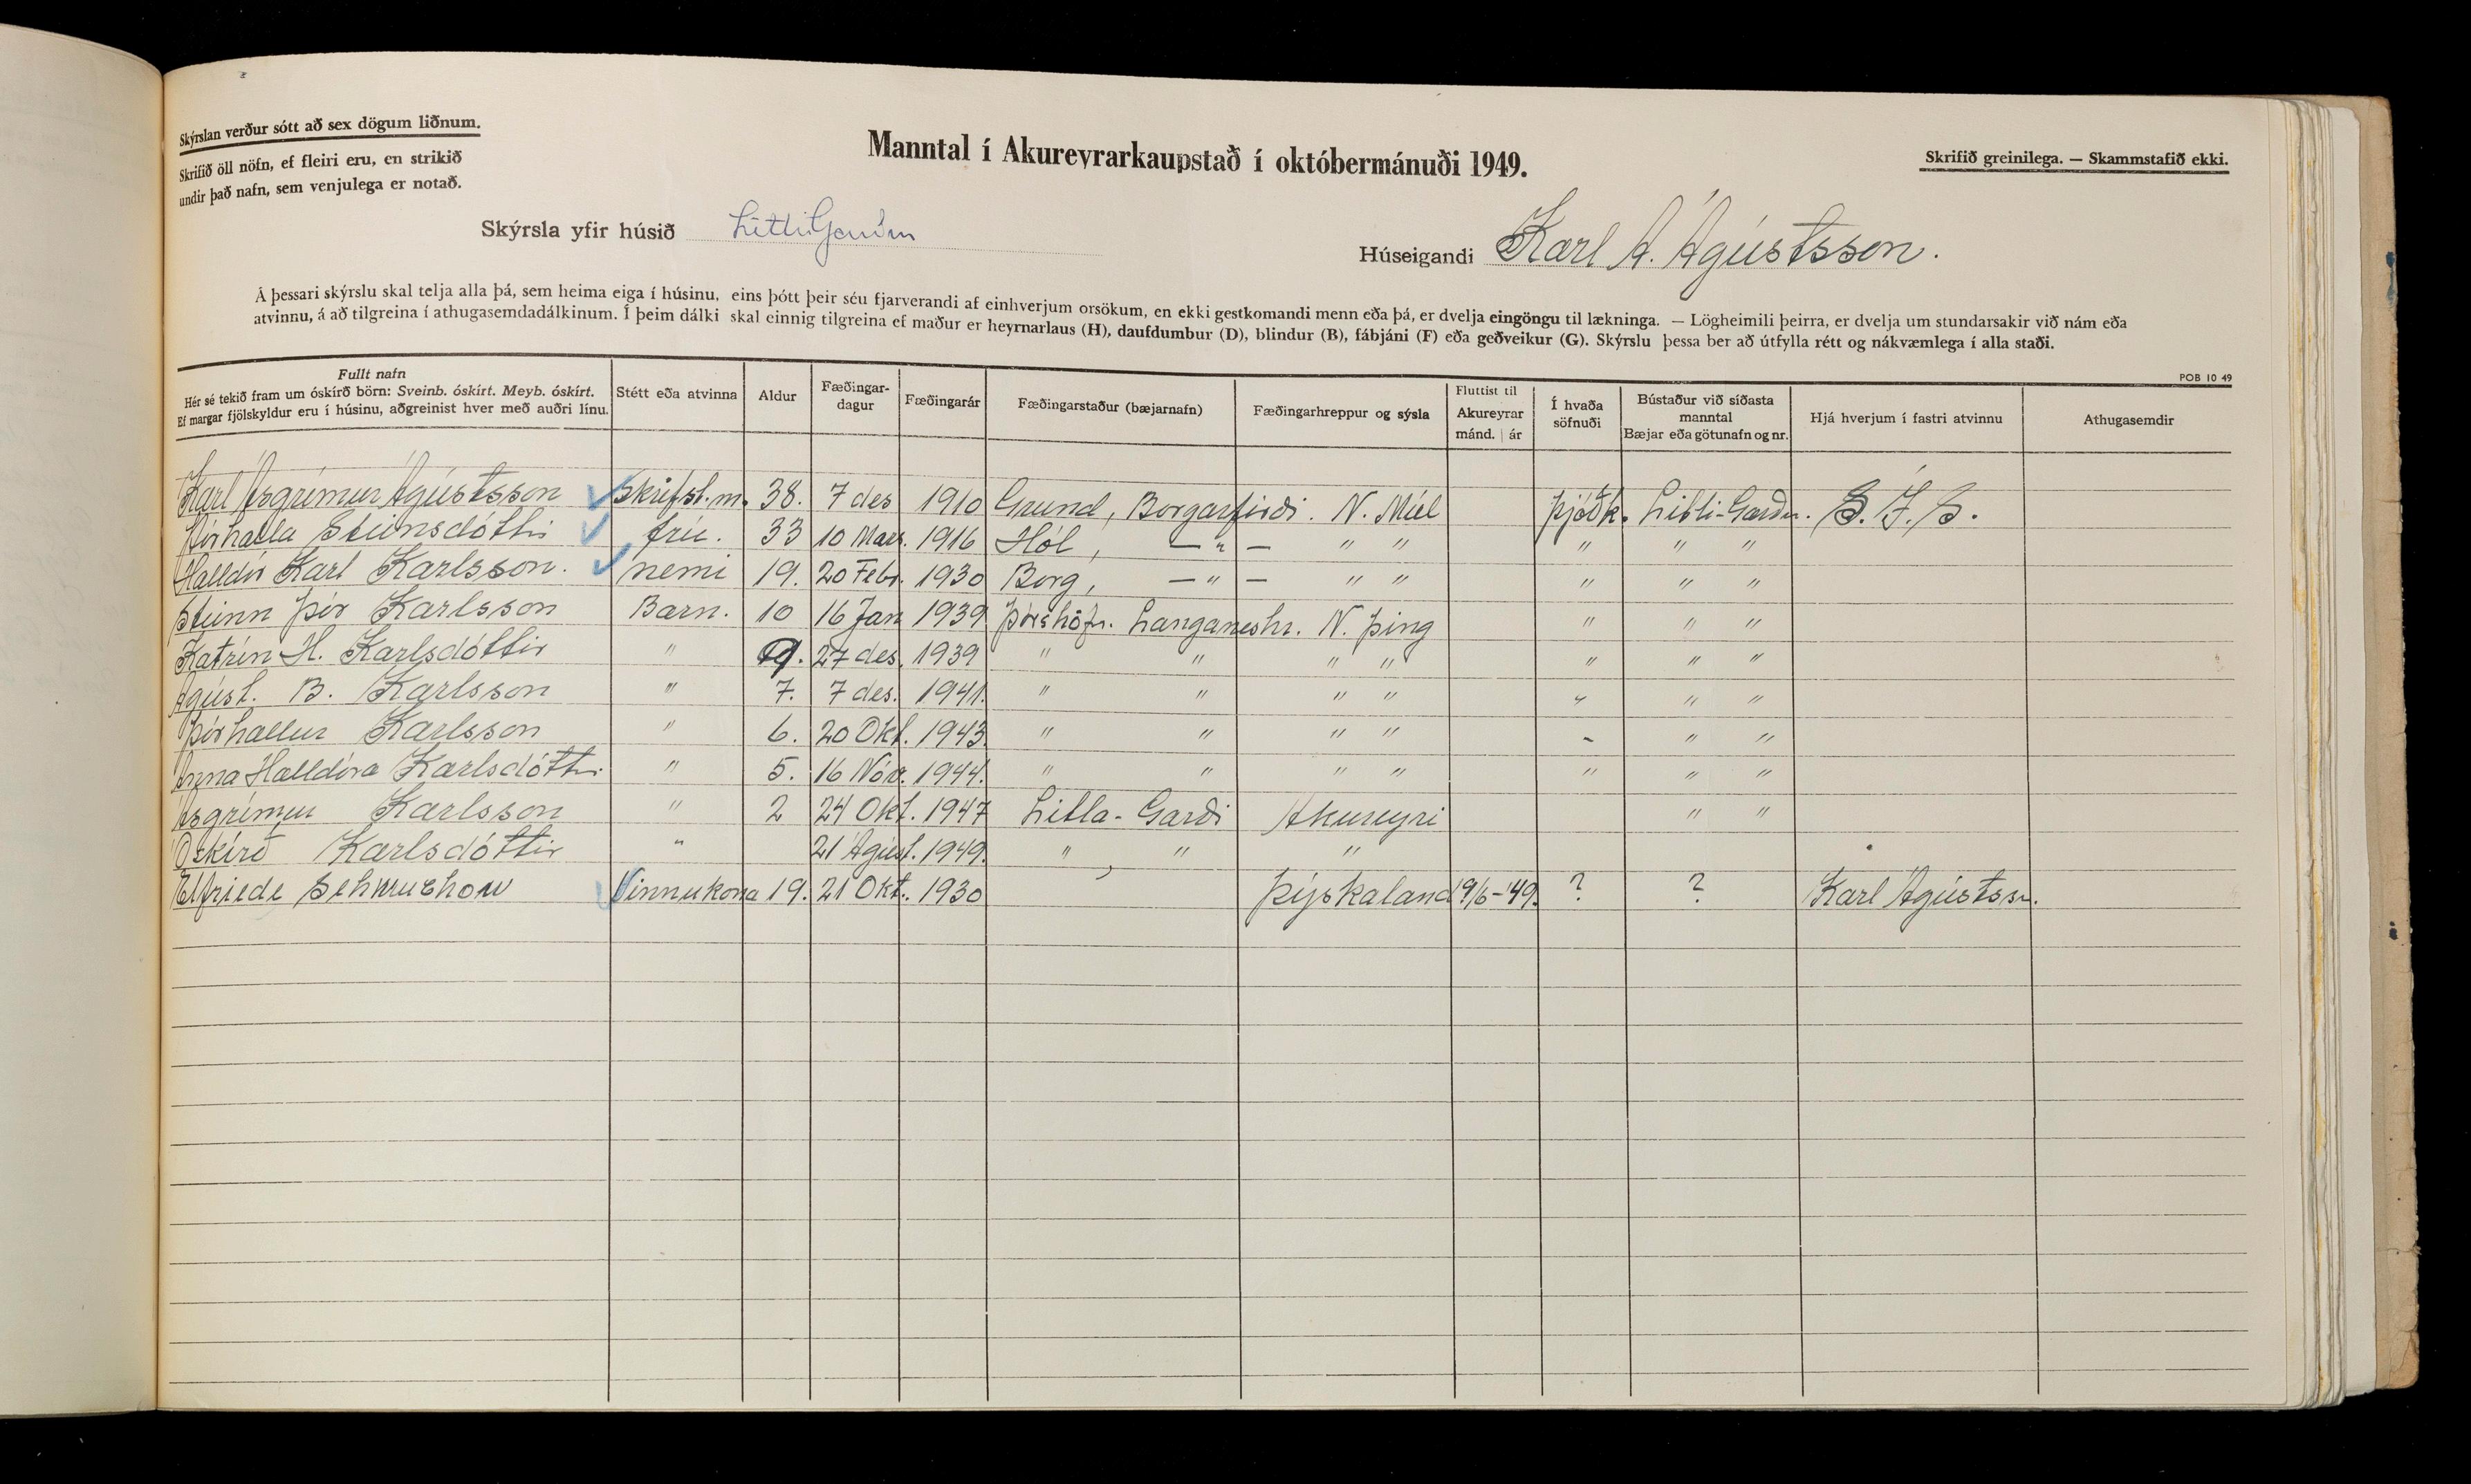 Skýrslan verður sótt að sex dögum liðnum.
Skrifið öll nöfn, ef fleiri eru, en strikið
undir það nafn, sem venjulega er notað.
Manntal í Akureyrarkaupstað í októbermánuði 1949.
Skrifið greinilega. — Skammstafið ekki.
Skýrsla yfir húsið Litli Garður
Húseigandi Karl Á. Ágústsson.
Á þessari skýrslu skal telja alla þá, sem heima eiga í húsinu, eins þótt þeir séu fjarverandi af einhverjum orsökum, en ekki gestkomandi menn eða þá, er dvelja eingöngu til lækninga. — Lögheimili þeirra, er dvelja um stundarsakir við nám eða
atvinnu, á að tilgreina í athugasemdadálkinum. Í þeim dálki skal einnig tilgreina ef maður er heyrnarlaus (H), daufdumbur (D), blindur (B), fábjáni (F) eða geðveikur (G). Skýrslu þessa ber að útfylla rétt og nákvæmlega í alla staði.
POB 10 49
Fullt nafn
Hér sé tekið fram um óskírð börn: Sveinb. óskírt. Meyb. óskírt.
Ef margar fjölskyldur eru í húsinu, aðgreinist hver með auðri línu.
Stétt eða atvinna
Aldur
Fæðingar-
dagur
Fæðingarár
Fæðingarstaður (bæjarnafn)
Fæðingarhreppur og sýsla
Fluttist til
Akureyrar
mánd. | ár
Í hvaða
söfnuði
Bústaður við síðasta
manntal
Bæjar eða götunafn og nr.
Hjá hverjum í fastri atvinnu
Athugasemdir
Karl Ásgrímur Ágústsson Skrifst.m. 38. 7 des 1910 Grund, Borgarfirði. N. Múl Þjóðk. Litli-Garður. S.Í.S.
Þórhalla Steinsdóttir frú. 33 10 Mars. 1916 Hól, — " — " " " " "
Halldór Karl Karlsson. nemi 19. 20 Febr. 1930 Borg, — " — " " " " "
Steinn Þór Karlsson Barn. 10 16 Jan 1939 Þórshöfn. Langaneshr. N. Þing " " "
Katrín H. Karlsdóttir " 9. 27 des. 1939 " " " " " " "
Ágúst. B. Karlsson " 7. 7 des. 1941. " " " " " " "
Þórhallur Karlsson " 6. 20 Okt. 1943. " " " " " " "
Anna Halldóra Karlsdóttir " 5. 16 Nóv. 1944. " " " " " " "
Ásgrímur Karlsson " 2 24 Okt. 1947 Litla-Garði Akureyri " "
Óskírð Karlsdóttir " 21 Ágúst. 1949. " " "
Elfriede Vinnukona 19. 21 Okt. 1930 Þýskaland 9/6-'49. ? ? Karl Ágústss.